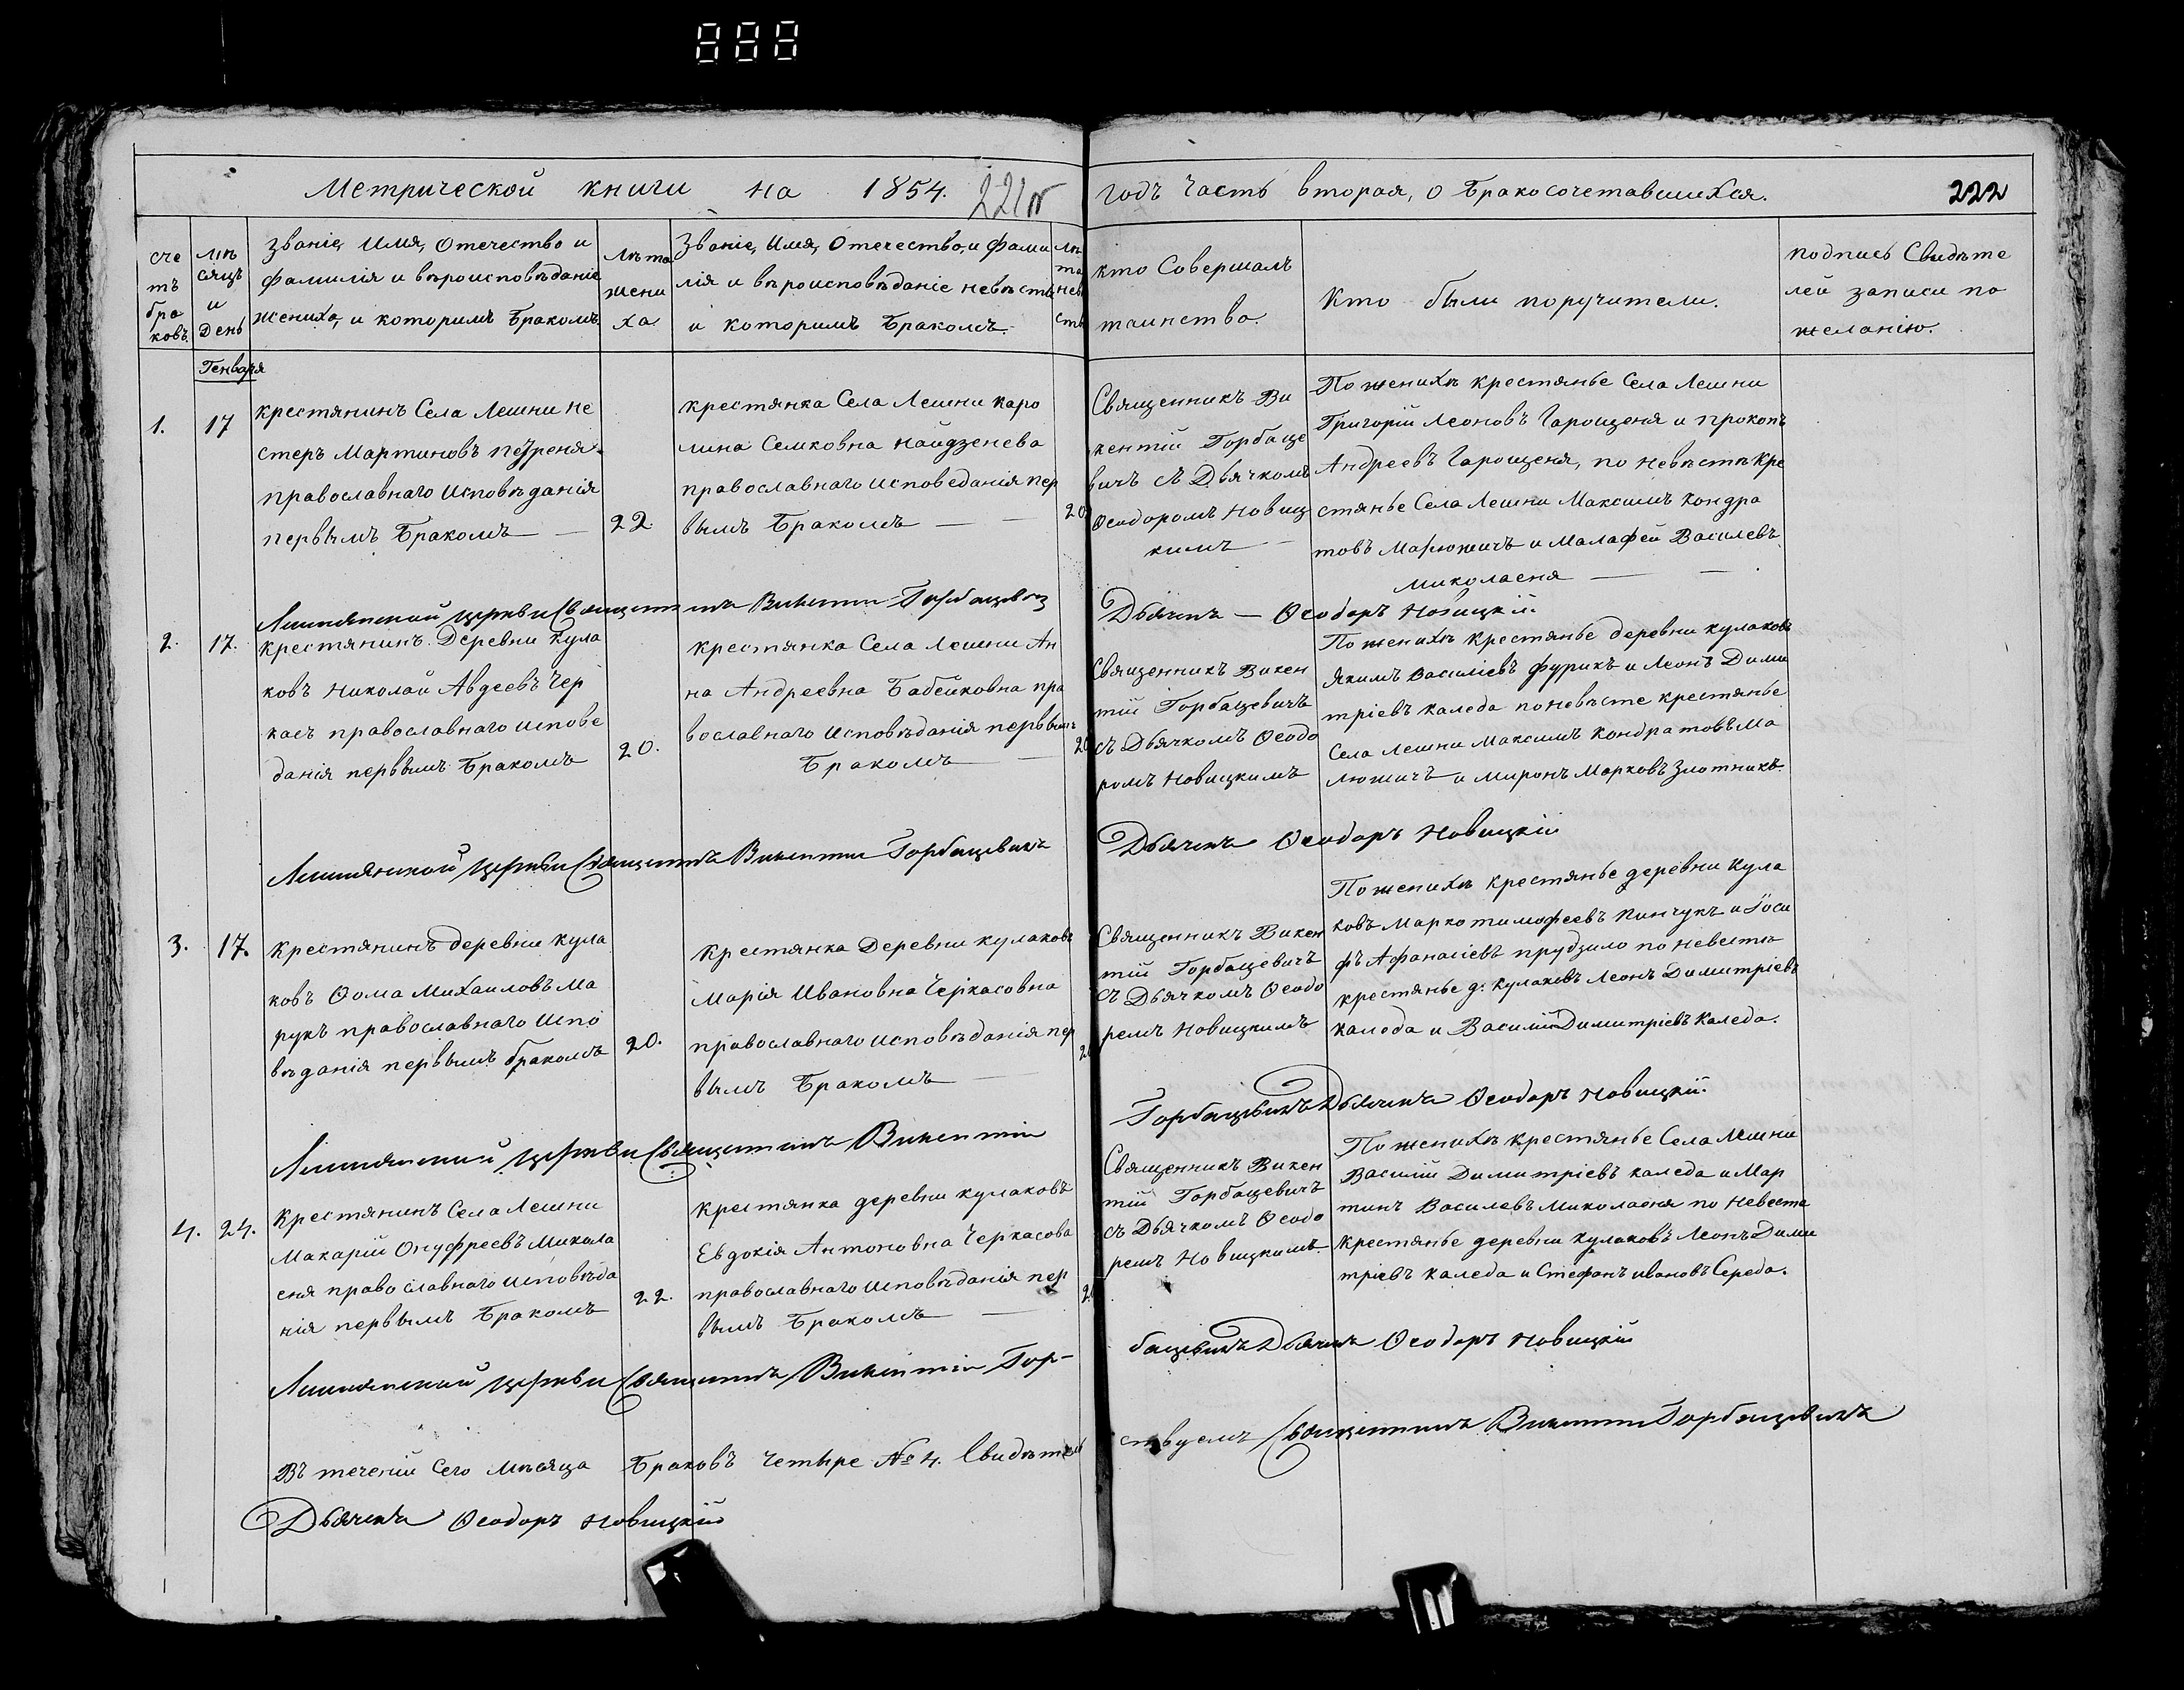 Метрической книги на 1854.
221
годъ часть вторая, о бракосочетавшихся.
222
сче
тъ
бра
ковъ.
мѣ
сяцъ
и
День
Званіе, Имя, Отечество и
фамилія и вѣроисповѣданіе
жениха, и которимъ бракомъ.
Лѣта
жени
ха.
Званіе, Имя, Отечество, и фами
лія и вѣроисповѣданіе невѣсты
и которимъ бракомъ.
Лѣ
та
невѣ
сты
кто Совершалъ
таинство.
Кто были поручители.
подпись Свидѣте
лей записи по
желанію.
Генваря
1.
17
крестянинъ Села Лешни Не
стеръ Мартиновъ
православнаго исповѣданія
первымъ бракомъ
22.
крестянка Села Лешни каро
лина Семковна Найдзенева
православнаго исповеданія пер
вымъ бракомъ
20
Священникъ Ви
кентій Горбаце
вичъ съ Дьячкомъ
Ѳеодоромъ Новиц
кимъ
По женихѣ крестянье Села Лешни
Григорій Леоновъ Гарощеня и прокопъ
Андреевъ Гарощеня, по невѣстѣ кре
стянье Села Лешни Максимъ Кондра
товъ Марюжичъ и Малафей Василевъ
Миколаеня
Лешнянской церкви Священникъ Викентій Горбацевич
Дьячекъ — Ѳеодоръ Новицкій.
2.
17.
крестянинъ Деревни Кула
ковъ Николай Авдеевъ Чер
касъ православнаго испове
данія первымъ бракомъ
20.
крестянка Села Лешни Ан
на Андреевна Бабейковна пра
вославнаго исповѣданія первымъ
бракомъ
Священникъ Викен
тій Горбацевичъ
съ Дьячкомъ Ѳеодо
ромъ Новицкимъ
По женихѣ крестянье деревни кулаковъ
Якимъ Василіевъ фурикъ и Леонъ Дими
тріевъ каледа по невѣсте крестянье
Села Лешни Максимъ Кондратовъ Ма
люжичъ и Миронъ Марковъ Злотникъ.
Лешнянской церкви Священникъ Викентій Горбацевичъ
Дьячекъ Ѳеодоръ Новицкій
3.
17.
крестянинъ деревни Кула
ковъ Ѳома Михаиловъ Ма
рукъ православнаго испо
вѣданія первымъ бракомъ
20.
Крестянка Деревни кулаковъ
Марія Ивановна Черкасовна
православнаго исповѣданія пер
вымъ бракомъ
Священникъ Викен
тій Горбацевичъ
съ Дьячкомъ Ѳеодо
ремъ Новицкимъ
По женихѣ крестянье деревни Кула
ковъ Марко тимофеевъ Пинчукъ и Іоси
фъ Афанасіевъ прудзило по невестѣ
крестянье д: кулаковъ Леонъ Димитріевъ
каледа и Василій Димитріевъ Каледа.
Лешнянской церкви Священникъ Викентій
Горбацевичъ Дьячекъ Ѳеодоръ Новицкій.
4.
24.
Крестянинъ Села Лешни
Макарій Онуфреевъ Микола
еня православнаго исповѣда
нія первымъ бракомъ
22.
Крестянка деревни кулаковъ
Евдокія Антоновна Черкасова
православнаго исповѣданія пер
вымъ бракомъ
Священникъ Викен
тій Горбацевичъ
съ Дьячкомъ Ѳеодо
ремъ Новицкимъ
По женихѣ крестянье Села Лешни
Василій Димитріевъ каледа и Мар
тинъ Василевъ Миколаеня по невесте
крестянье деревни кулаковъ Леонъ Дими
тріевъ каледа и Стефанъ ивановъ Середа.
Лешнянской церкви Священникъ Викентій Гор-
бацевичъ Дьячекъ Ѳеодоръ Новицкій
Въ теченіи Сего Мѣсяца браковъ четыре № 4. Свидѣтель
ствуемъ Священникъ Викентій Горбацевичъ
Дьячекъ Ѳеодоръ Новицкій